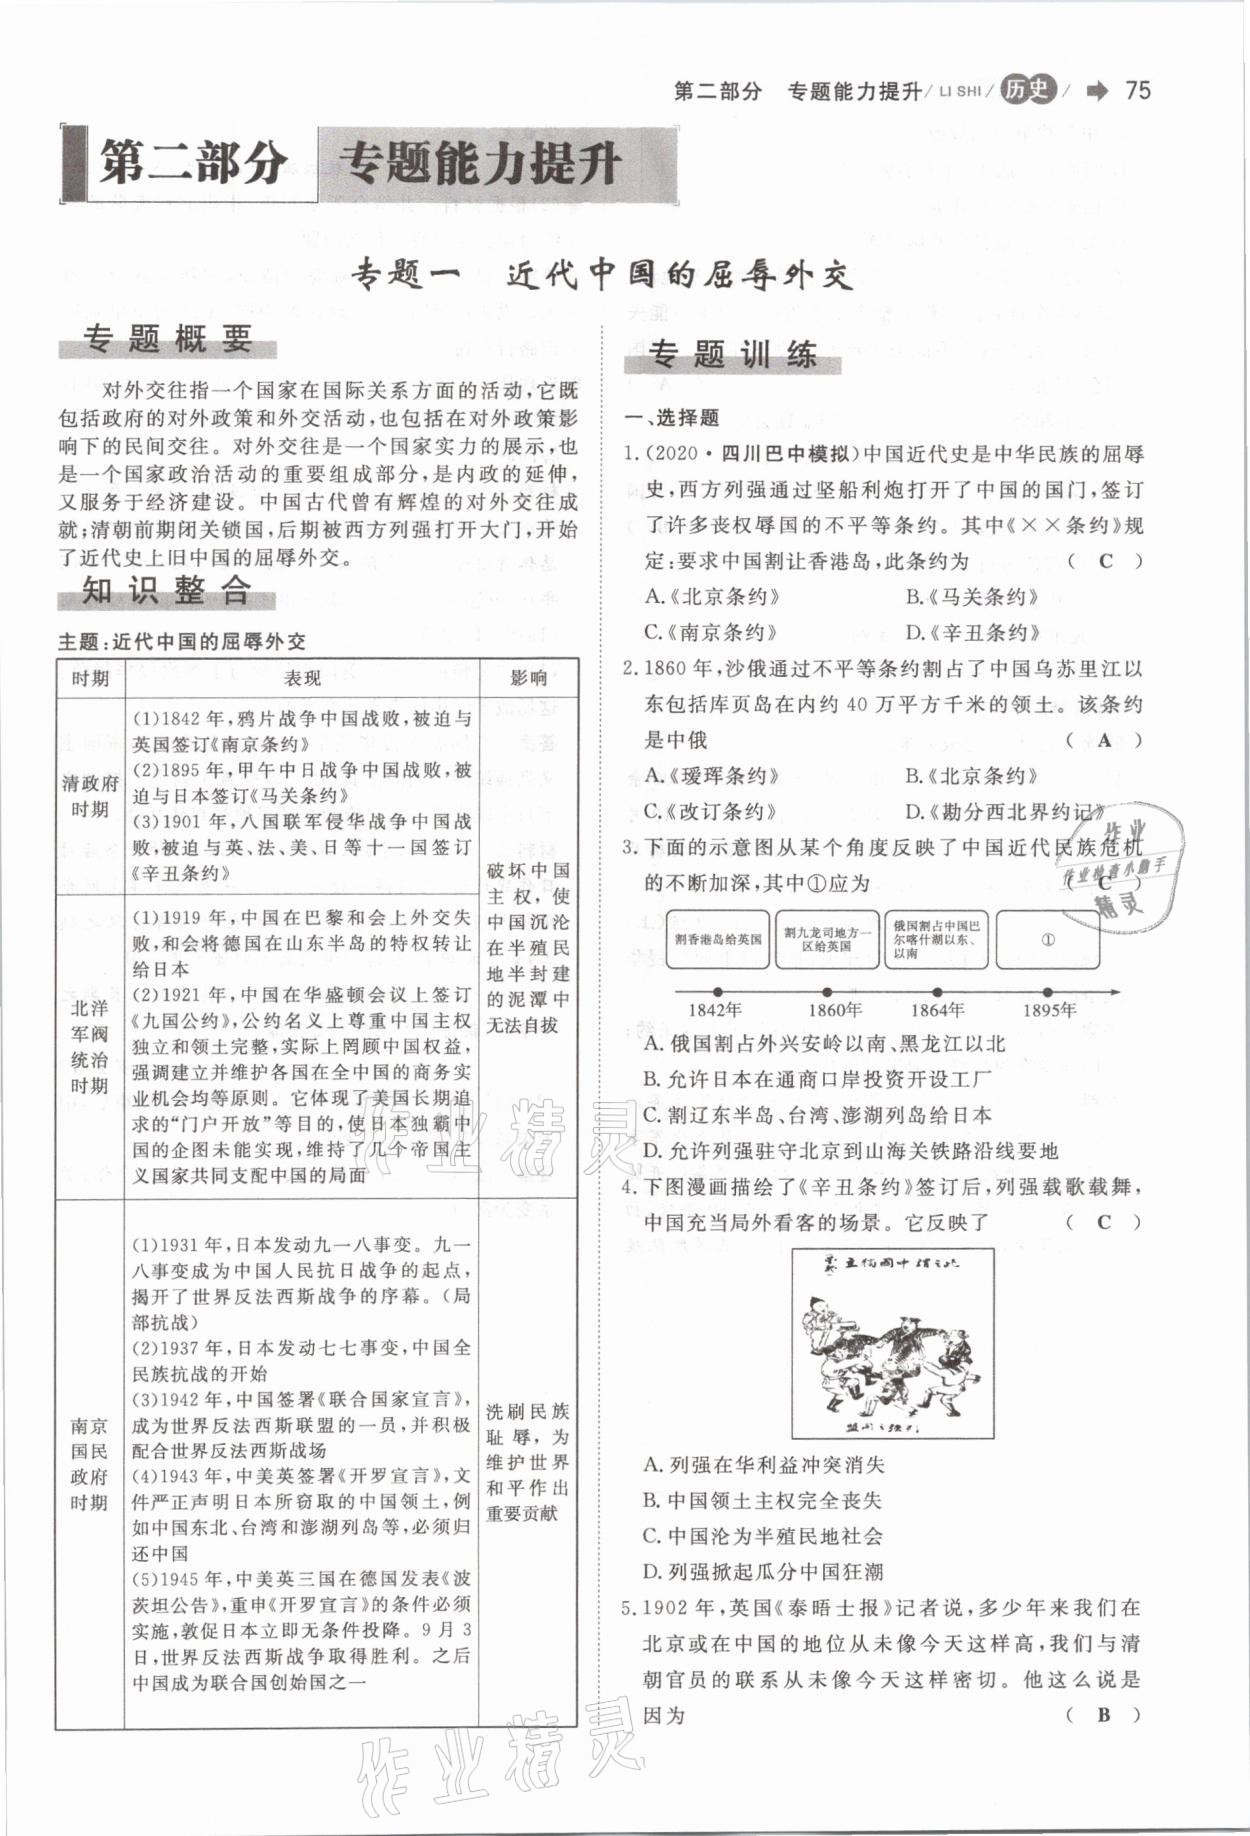 第二部分 专题能力提升/LI SHI/历史/ 75
第二部分 专题能力提升
专题一 近代中国的屈辱外交
专题概要
对外交往指一个国家在国际关系方面的活动,它既
包括政府的对外政策和外交活动,也包括在对外政策影
响下的民间交往。对外交往是一个国家实力的展示,也
是一个国家政治活动的重要组成部分,是内政的延伸,
又服务于经济建设。中国古代曾有辉煌的对外交往成
就;清朝前期闭关锁国,后期被西方列强打开大门,开始
了近代史上旧中国的屈辱外交。
知识整合
主题:近代中国的屈辱外交
时期 表现 影响
清政府
时期
(1)1842年,鸦片战争中国战败,被迫与
英国签订《南京条约》
(2)1895年,甲午中日战争中国战败,被
迫与日本签订《马关条约》
(3)1901年,八国联军侵华战争中国战
败,被迫与英、法、美、日等十一国签订
《辛丑条约》
北洋
军阀
统治
时期
(1)1919年,中国在巴黎和会上外交失
败,和会将德国在山东半岛的特权转让
给日本
(2)1921年,中国在华盛顿会议上签订
《九国公约》,公约名义上尊重中国主权
独立和领土完整,实际上罔顾中国权益,
强调建立并维护各国在全中国的商务实
业机会均等原则。它体现了美国长期追
求的“门户开放”等目的,使日本独霸中
国的企图未能实现,维持了几个帝国主
义国家共同支配中国的局面
破坏中国
主权,使
中国沉沦
在半殖民
地半封建
的泥潭中
无法自拔
南京
国民
政府
时期
(1)1931年,日本发动九一八事变。九一
八事变成为中国人民抗日战争的起点,
揭开了世界反法西斯战争的序幕。(局
部抗战)
(2)1937年,日本发动七七事变,中国全
民族抗战的开始
(3)1942年,中国签署《联合国家宣言》,
成为世界反法西斯联盟的一员,并积极
配合世界反法西斯战场
(4)1943年,中美英签署《开罗宣言》,文
件严正声明日本所窃取的中国领土,例
如中国东北、台湾和澎湖列岛等,必须归
还中国
(5)1945年,中美英三国在德国发表《波
茨坦公告》,重申《开罗宣言》的条件必须
实施,敦促日本立即无条件投降。9月3
日,世界反法西斯战争取得胜利。之后
中国成为联合国创始国之一
洗刷民族
耻辱,为
维护世界
和平作出
重要贡献
专题训练
一、选择题
1.(2020·四川巴中模拟)中国近代史是中华民族的屈辱
史,西方列强通过坚船利炮打开了中国的国门,签订
了许多丧权辱国的不平等条约。其中《××条约》规
定:要求中国割让香港岛,此条约为 ( C )
A.《北京条约》 B.《马关条约》
C.《南京条约》 D.《辛丑条约》
2.1860年,沙俄通过不平等条约割占了中国乌苏里江以
东包括库页岛在内约40万平方千米的领土。该条约
是中俄 ( A )
A.《瑷珲条约》 B.《北京条约》
C.《改订条约》 D.《勘分西北界约记》
3.下面的示意图从某个角度反映了中国近代民族危机
的不断加深,其中①应为 ( C )
割香港岛给英国
割九龙司地方一
区给英国
俄国割占中国巴
尔喀什湖以东、
以南
①
1842年 1860年 1864年 1895年
A.俄国割占外兴安岭以南、黑龙江以北
B.允许日本在通商口岸投资开设工厂
C.割辽东半岛、台湾、澎湖列岛给日本
D.允许列强驻守北京到山海关铁路沿线要地
4.下图漫画描绘了《辛丑条约》签订后,列强载歌载舞,
中国充当局外看客的场景。它反映了 ( C )
A.列强在华利益冲突消失
B.中国领土主权完全丧失
C.中国沦为半殖民地社会
D.列强掀起瓜分中国狂潮
5.1902年,英国《泰晤士报》记者说,多少年来我们在
北京或在中国的地位从未像今天这样高,我们与清
朝官员的联系从未像今天这样密切。他这么说是
因为 ( B )
作业
作业检查小助手
精灵
作业精灵
作业精灵